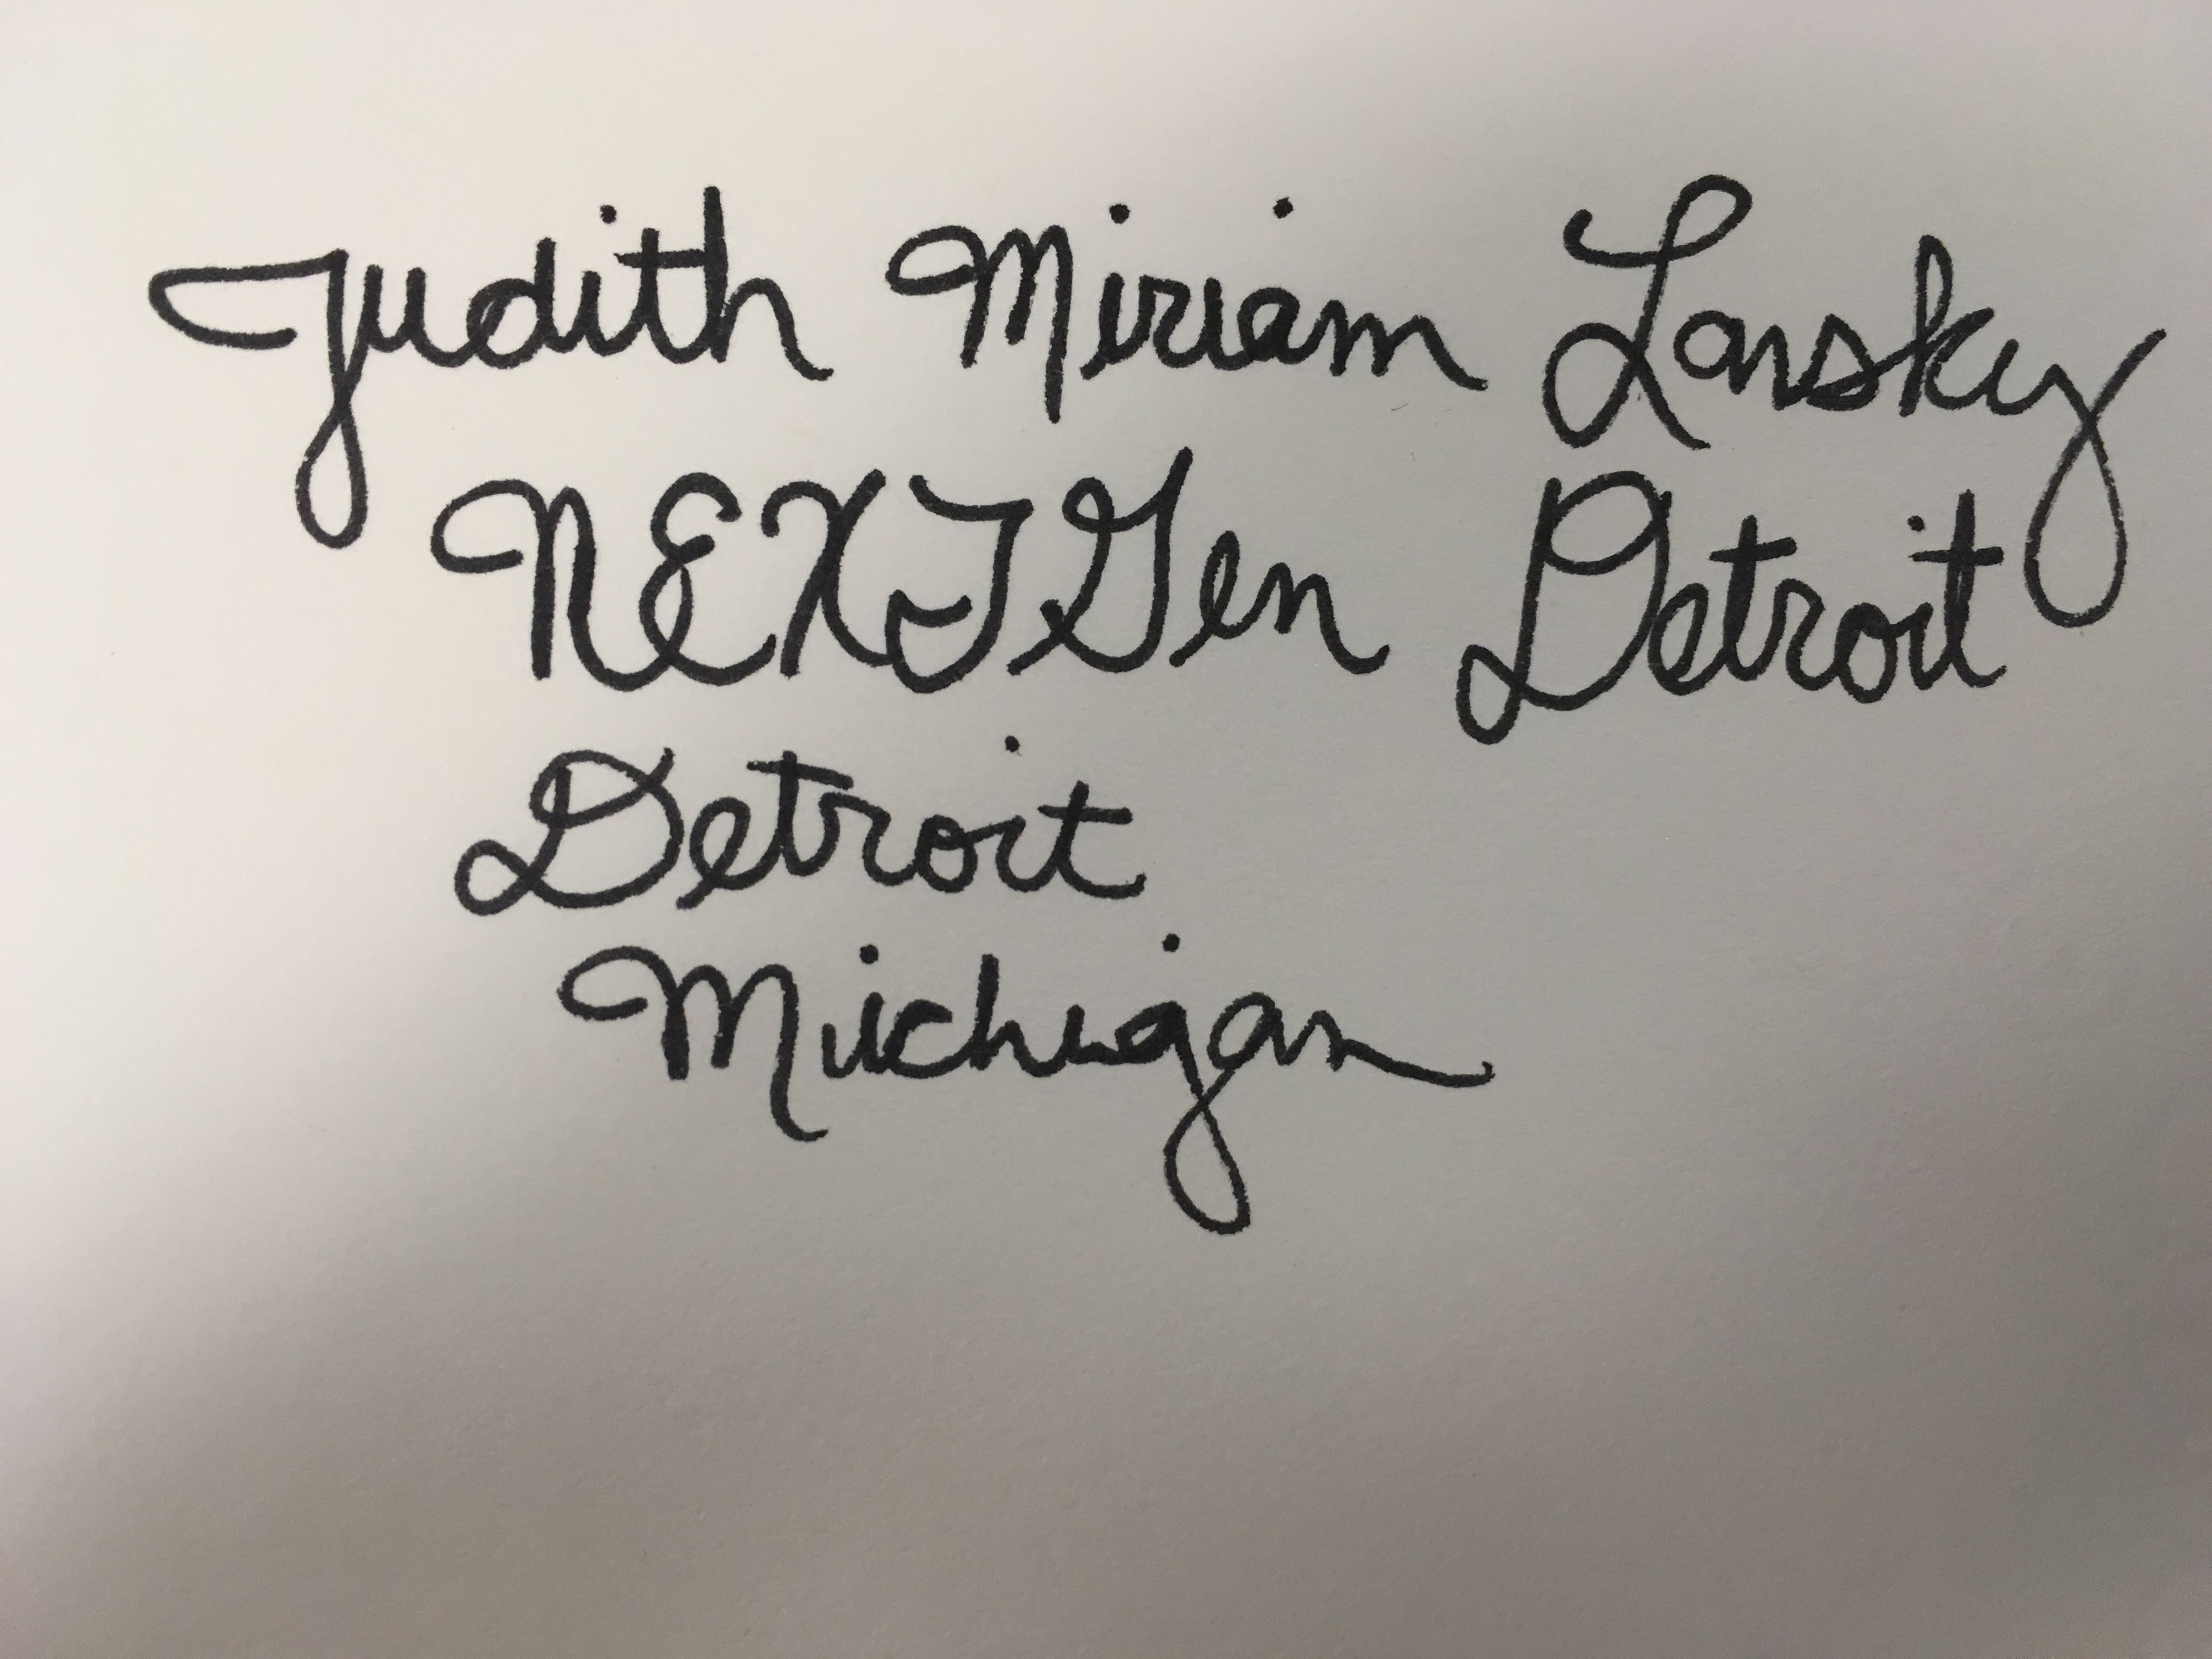 Judith Miriam Lansky
NEXTGen Detroit
Detroit
Michigan